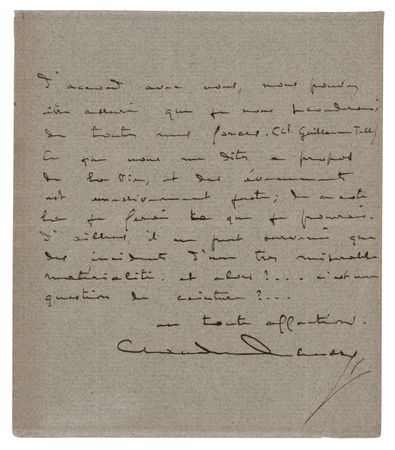 D'accord avec vous, vous pouvez
être assuré que je vous seconderai
de toutes mes forces. (Cf. Guillaume Tell)
Ce que vous me dites, à propos
de La Vie, et des événements
est excessivement juste; de ce côté
je ferai ce que je pourrai.
D'ailleurs, il ne peut survenir que
des incidents d'une très misérable
matérialité. et alors ?... c'est une
question de ceinture ?...
en toute affection.
Claude Debussy